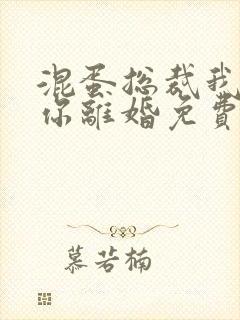 混蛋总裁我
你離婚免費
慕若楠